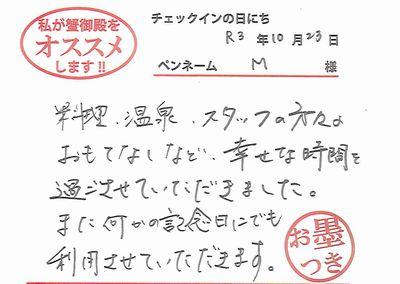 私が蟹御殿を
オススメ
します!!
チェックインの日にち
R3 年 10 月 23 日
ペンネーム M 様
料理、温泉、スタッフの方々の
おもてなしなど、幸せな時間を
過ごさせていただきました。
また何かの記念日にでも
利用させていただきます。
お墨
つき